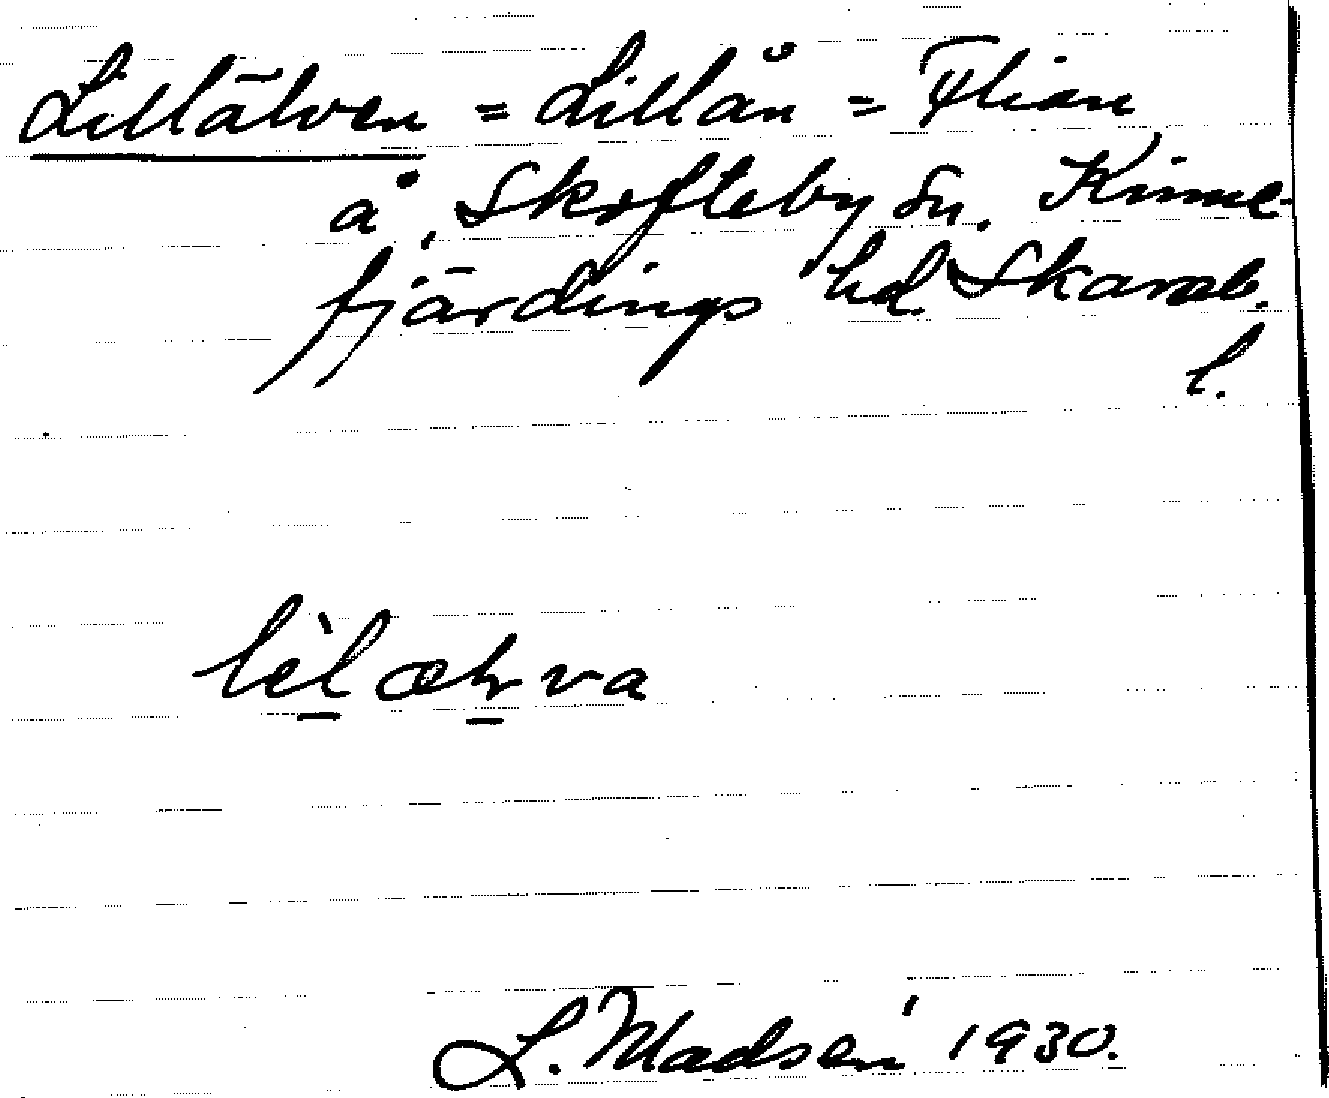 Lillälven = Lillån = Flian
å, Skofteby sn. Kinne-
fjärdings hd. Skarab.
l.
lèlæl va
L. Madsén 1930.